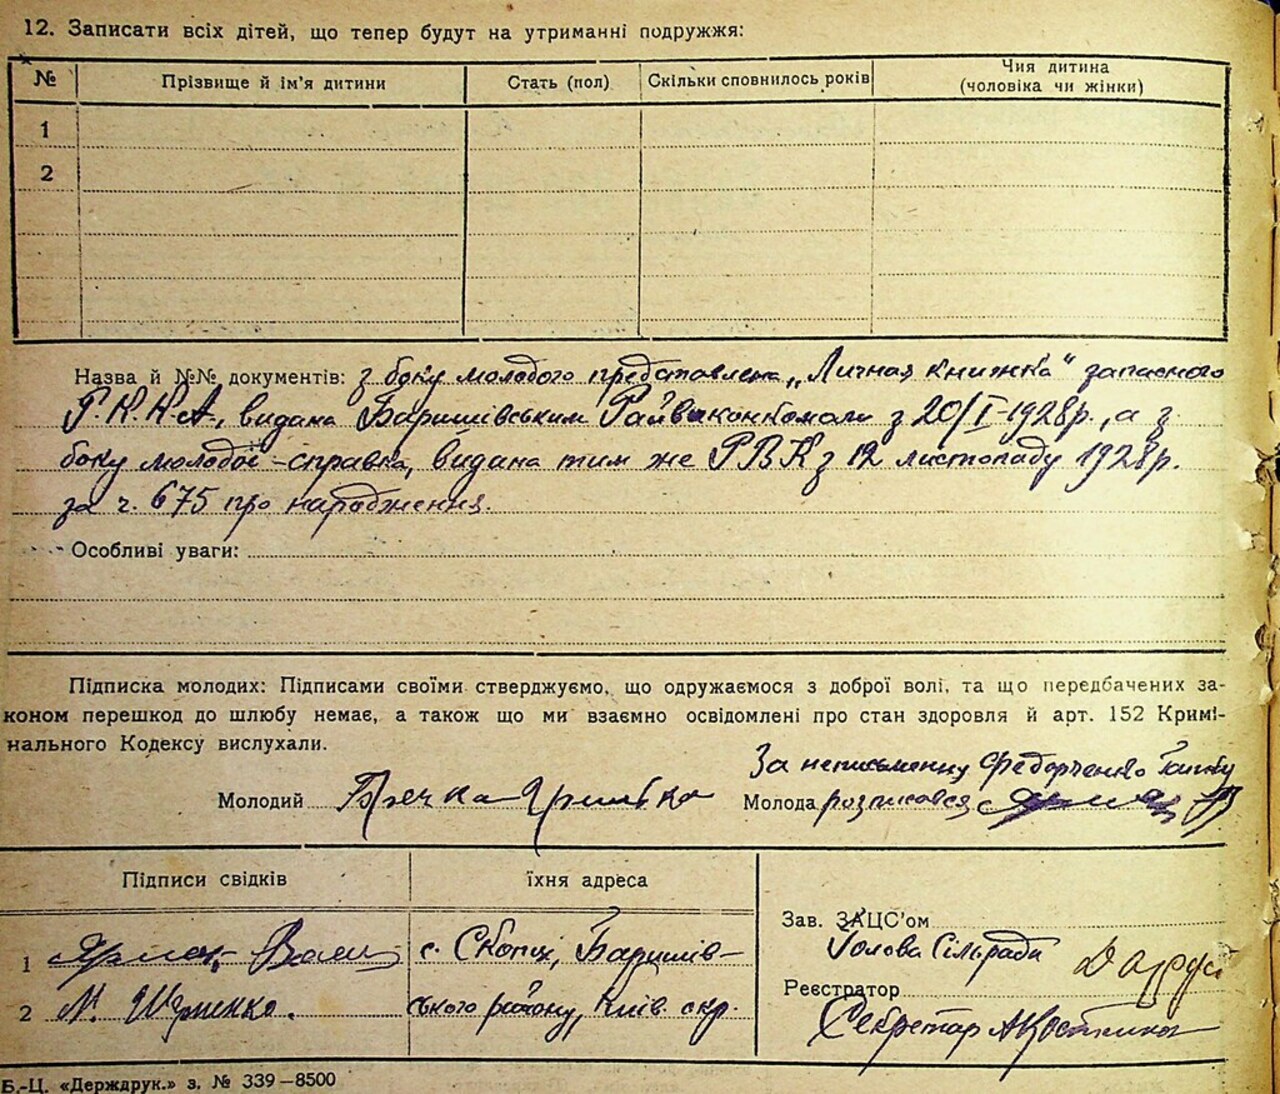 12. Записати всіх дітей, що тепер будут на утриманні подружжя:
№ Прізвище й ім'я дитини Стать (пол) Скільки сповнилось років Чия дитина (чоловіка чи жінки)
1
2
Назва й №№ документів: з боку молодого представлена „Личная книжка" запасного
Р.К.К.А, видана Баришівським Райвиконкомом з 20/I-1928р., а з
боку молодої - справка, видана тим же РВК з 12 листопаду 1928р.
за ч. 675 про народження.
Особливі уваги:
Підписка молодих: Підписами своїми стверджуємо, що одружаємося з доброї волі, та що передбачених за-
коном перешкод до шлюбу немає, а також що ми взаємно освідомлені про стан здоровля й арт. 152 Кримі-
нального Кодексу вислухали.
За неписьменну Федорченко
Молодий Гречка Молода розписався
Підписи свідків їхня адреса
Зав. ЗАЦС'ом
1 с. Скопці, Баришів- Голова Сільради
Реєстратор
2 ського району, Київ. окр. Секретар
Б.-Ц. «Держдрук.» з. № 339—8500